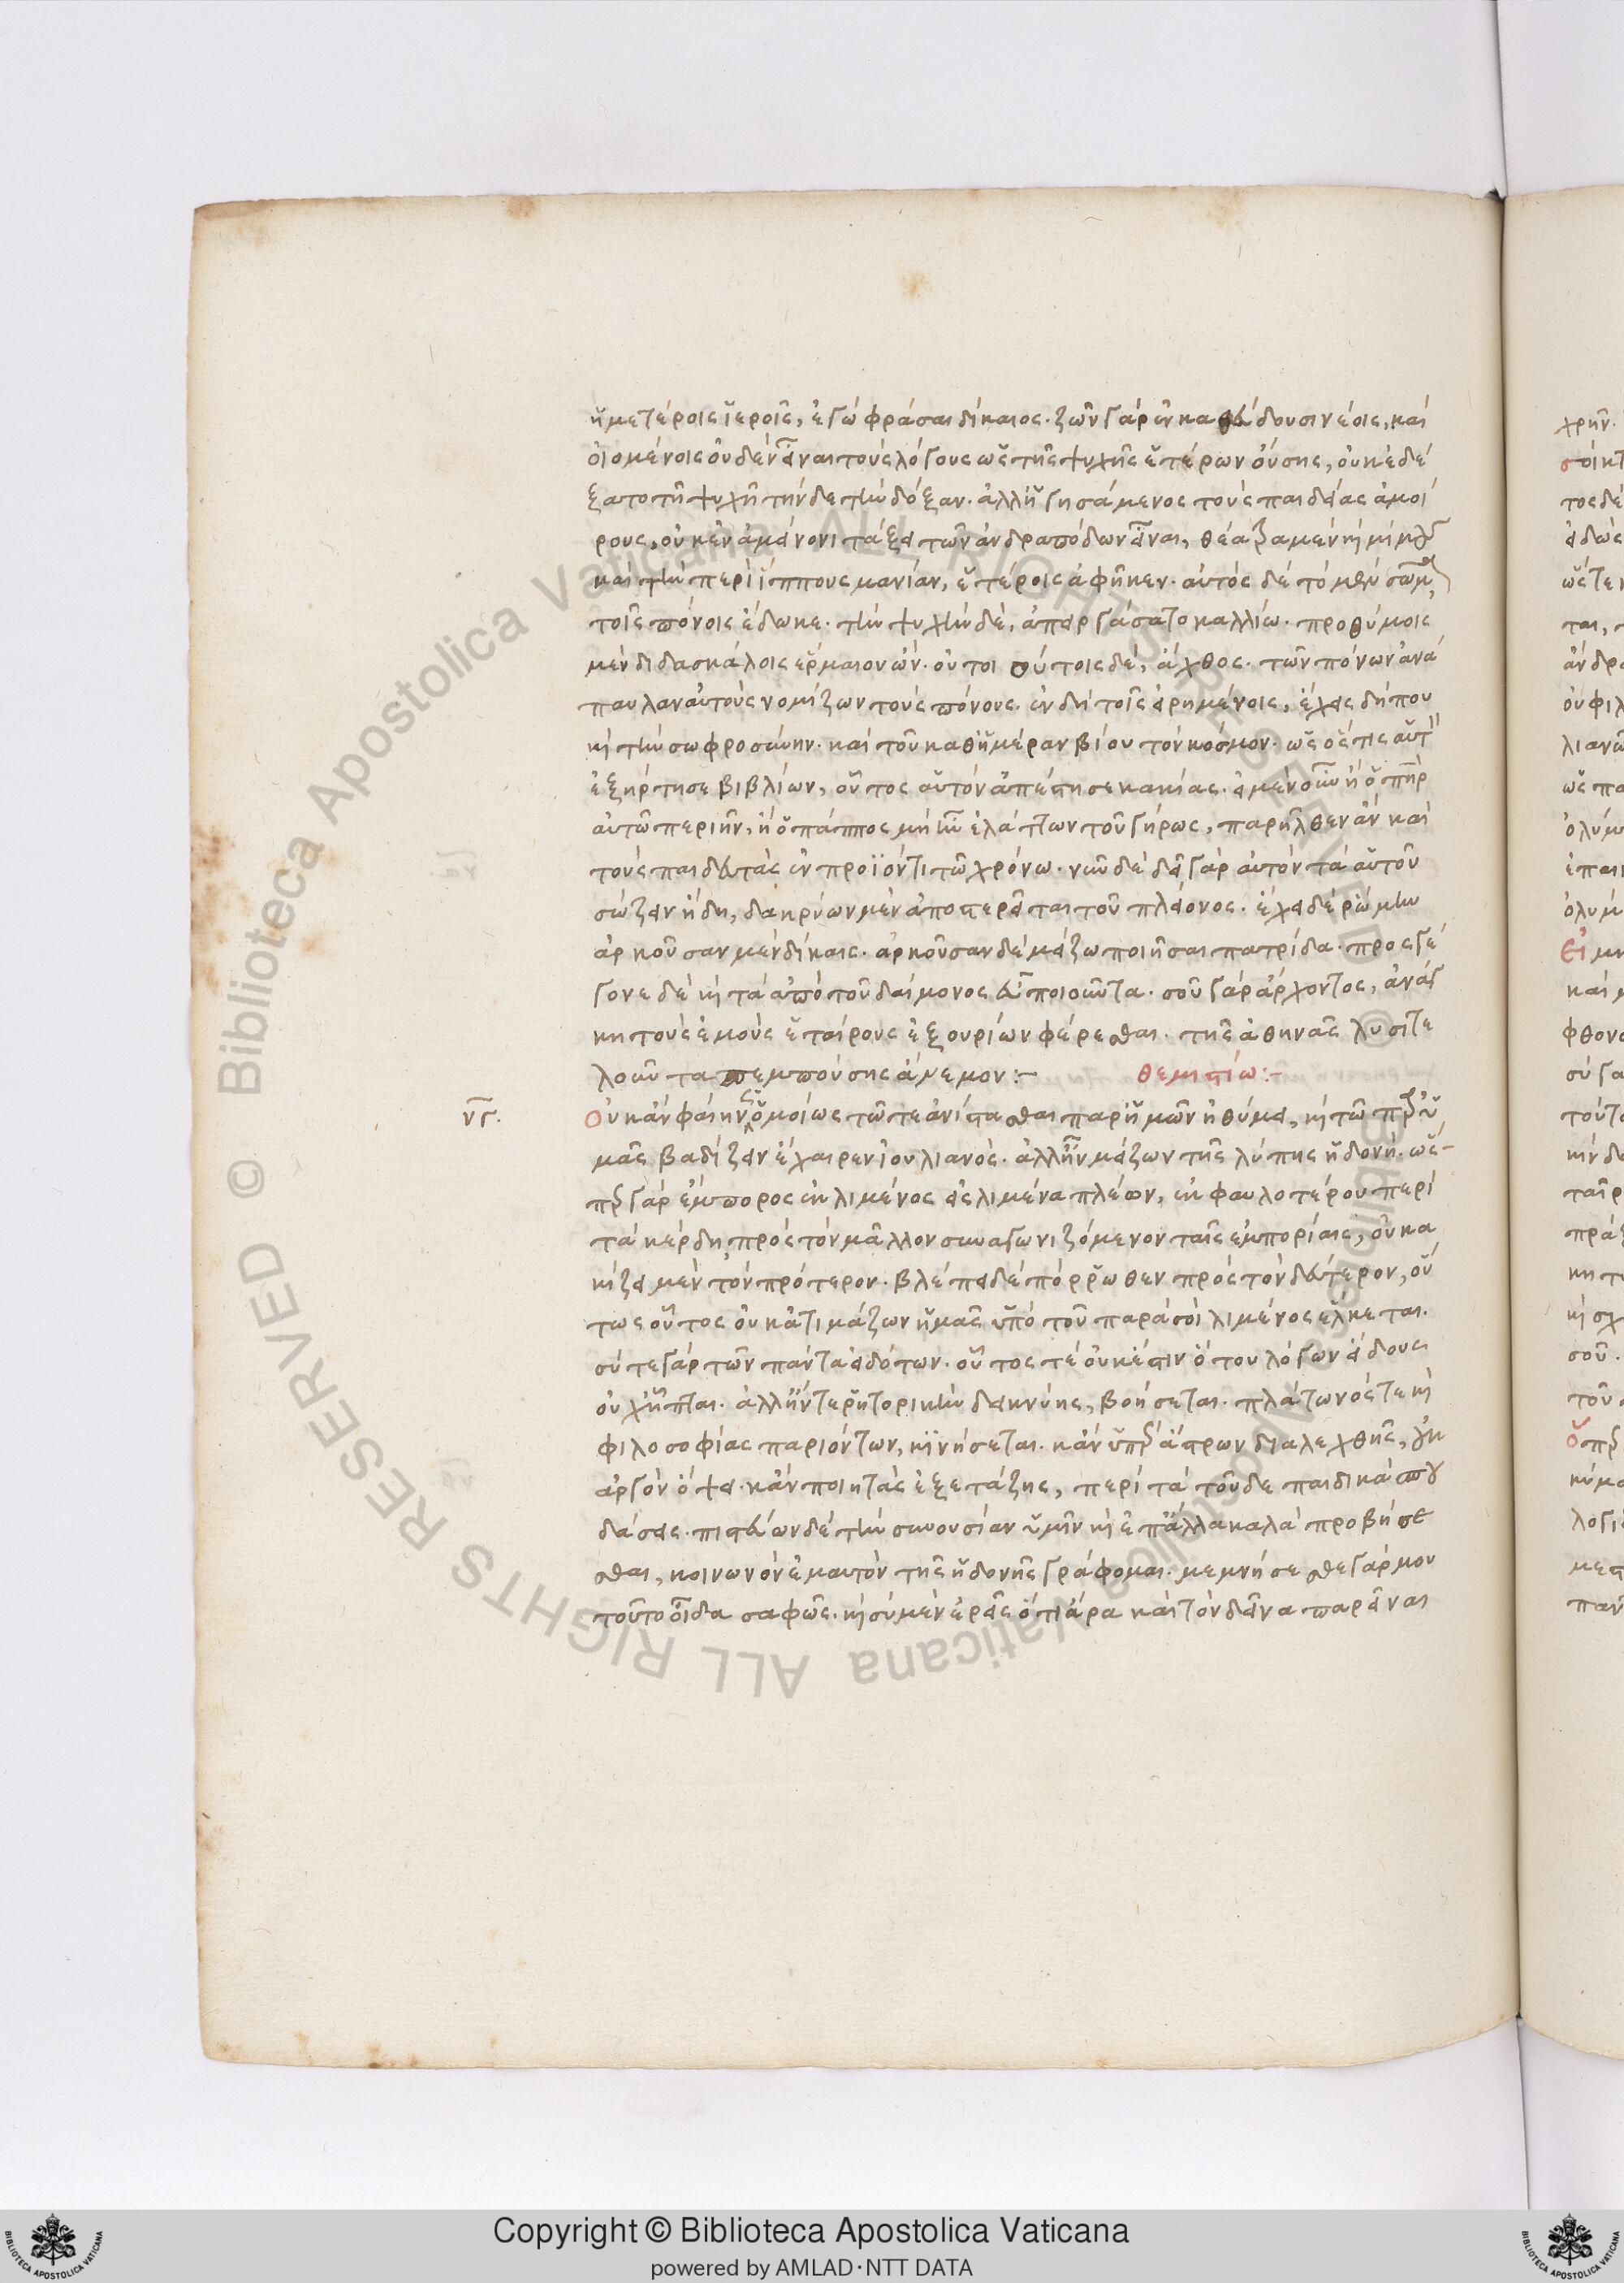 ἡμετέροις ἱεροῖς, ἐγὼ φράσαι δίκαιος. ζῶν γὰρ ἐν καθεύδουσι νέοις, καὶ
οἰομένοις οὐδὲν εἶναι τοὺς λόγους ὡς τῆς ψυχῆς ἑτέρων οὔσης, οὐκ ἐδέ
ξατο τῇ ψυχῇ τήνδε τὴν δόξαν. ἀλλ' ἡγησάμενος τοὺς παιδείας ἀμοί
ρους, οὐκ ἐν ἀμείνονι τάξει τῶν ἀνδραπόδων εἶναι, θέατρα μὲν κὶ
καὶ τὴν περὶ ἵππους μανίαν, ἑτέροις ἀφῆκεν. αὐτὸς δὲ τὸ μὲν σῶμα,
τοῖς πόνοις ἔδωκε. τὴν ψυχὴν δὲ, ἀπειργάσατο καλλίω. προθύμοις
μὲν διδασκάλοις ἕρμαιον ὤν. οὐ τοιούτοις δὲ, ἄχθος. τῶν πόνων ἀνά
παυλαν αὐτοὺς νομίζων τοὺς πόνους. ἐν δὴ τοῖς εἰρημένοις, ἔχεις δήπου
κὶ τὴν σωφροσύνην. καὶ τοῦ καθ' ἡμέραν βίου τὸν κόσμον. ὡς ὅστις αὑτὸν
ἐξήρτησε βιβλίων, οὗτος αὑτὸν ἀπέστησε κακίας. εἰ μὲν οὖν ἢ ὁ πατὴρ
αὐτῷ περιῆν, ἢ ὁ πάππος μὴ ἦν ἐλάττων τοῦ γήρως, παρῆλθεν ἂν καὶ
τοὺς παιδευτὰς ἐν προϊόντι τῷ χρόνω. νῦν δὲ δεῖ γὰρ αὐτὸν τὰ αὑτοῦ
σώζειν ἤδη, δακρύων μὲν ἀποστερεῖται τοῦ πλείονος. ἔχει δὲ ῥώμην
ἀρκοῦσαν μὲν δίκαις. ἀρκοῦσαν δὲ μείζω ποιῆσαι πατρίδα. προσγέ
γονε δὲ κὶ τὰ ἀπὸ τοῦ δαίμονος εὖ ποιοῦντα. σοῦ γὰρ ἄρχοντος, ἀνάγ
κη τοὺς ἐμοὺς ἑταίρους ἐξ οὐρίων φέρεσθαι. τῆς ἀθηνᾶς λυσιτε
λοῦντα πεμπούσης ἄνεμον :- θεμιστίω :-
νγ. Οὐκ ἂν φαίην ὁμοίως τῷ τε ἀνίστασθαι παρ' ἡμῶν ἠθύμει, κὶ τῷ πρὸς ὑ
μᾶς βαδίζειν ἔχαιρεν ἰουλιανός. ἀλλ' ἦν μείζων τῆς λύπης ἡδονή. ὥσ-
περ γὰρ ἔμπορος ἐκ λιμένος εἰς λιμένα πλέων, ἐκ φαυλοτέρου περὶ
τὰ κέρδη, πρὸς τὸν μᾶλλον συναγωνιζόμενον ταῖς ἐμπορίαις, οὐ κα
κίζει μὲν τὸν πρότερον. βλέπει δὲ πόρρωθεν πρὸς τὸν δεύτερον, οὕ
τως οὗτος οὐκ ἀτιμάζων ἡμᾶς ὑπὸ τοῦ παρὰ σοὶ λιμένος εἵλκεται.
σύ τε γὰρ τῶν πάντα εἰδότων. οὗτός τε οὐκ ἔστιν ὅτου λόγων εἴδους
οὐχ ἥπται. ἀλλ' ἤν τε ῥητορικὴν δεικνύης, βοήσεται. πλάτωνός τε κὶ
φιλοσοφίας παριόντων, κινήσεται. κἂν ὑπὲρ ἄστρων διαλεχθῇς, οὐκ
ἀργὸν ὄψει. κἂν ποιητὰς ἐξετάζης, περὶ τὰ τοῦδε παιδικὰ σπου
δάσεις. πιστεύων δὲ τὴν συνουσίαν ὑμῖν κὶ ἐπ' ἄλλα καλὰ προβήσε
σθαι, κοινωνὸν ἐμαυτὸν τῆς ἡδονῆς γράφομαι. μεμνήσεσθε γάρ μου
τοῦτο οἶδα σαφῶς. κὶ σὺ μὲν ἐρεῖς ὅτι ἄρα καὶ τὸν δεῖνα παρεῖναι
Copyright © Biblioteca Apostolica Vaticana
powered by AMLAD·NTT DATA